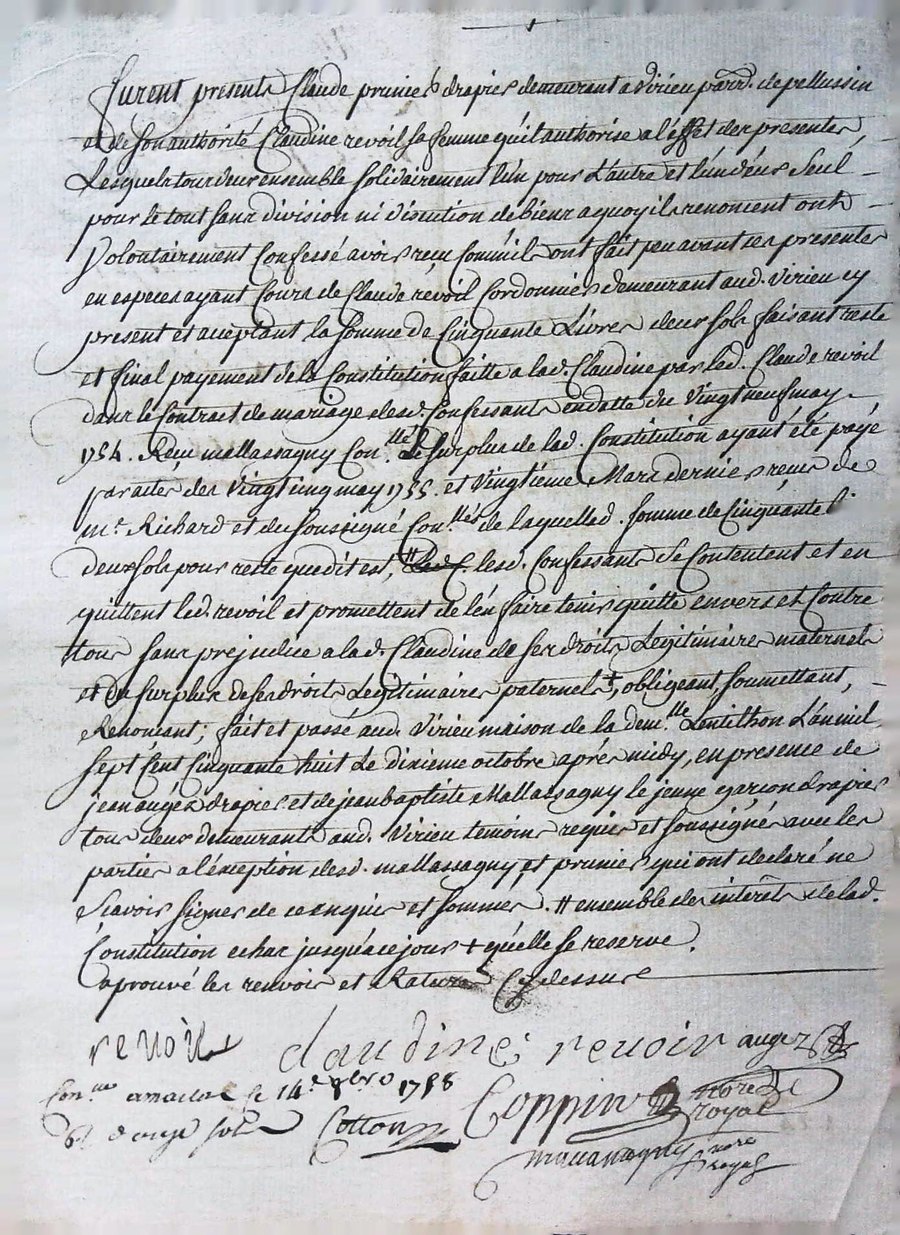 furent presents Claude prunier drapier demeurant a Virieu parr. de pellussin
et de son authorité Claudine revoil sa femme qu'il authorise a l'effet des presentes,
Lesquels tous deux ensemble solidairement l'un pour L'autre et l'un d'eux seul
pour le tout sans division ni discution de biens a quoy ils renoncent ont
Volontairement Confessé avoir reçu Comm'ils ont fait peu avant ces presentes
en especes ayant Cours de Claude revoil Cordonnier demeurant aud. Virieu cy
present et aceptant la somme de Cinquante Livres deux sols faisant reste
et final payement de la Constitution faitte a lad. Claudine par led. Claude revoil
dans le Contract de mariage desd. Confessants en datte du Vingt neuf may
1754. Recu mallassagny Con.llé Le surplus de lad. Constitution ayant été payé
par actes des Vingt cinq may 1755. et Vingtieme Mars dernier reçus de
m.e Richard et du soussigné Con.llés de laquelle d. somme de Cinquante l.
deux sols pour reste que dit est, # lesd. Confessants se Contentent et en
quittent led. revoil et promettent de l'en faire tenir quitte envers et Contre
tous sans prejudice a lad. Claudine de ses droits Legitimaires maternels
et du surplus de ses droits Legitimaires paternels +, obligeant, soumettant,
Renonçant; fait et passé aud. Virieu maison de la dem.lle Lentilhon L'an mil
sept Cent Cinquante huit Le dixieme octobre après midy, en presence de
jean augez drapier et de jean baptiste Mallassagny le jeune garçon drapier
tous deux demeurants aud. Virieu temoins requis et soussignés avec les
parties a l'éxception desd. mallassagny et prunier qui ont declaré ne
scavoir signer de ce enquis et sommés. # ensemble des interêts de lad.
Constitution echus jusqu'a ce jour + qu'elle se reserve.
aprouvé les renvois et Rature Cy dessus
revoil claudine revoir augez
Con.llé le 14.e 8bro 1758
douze sols Cotton Coppin nore royal
mallassagny nore royal